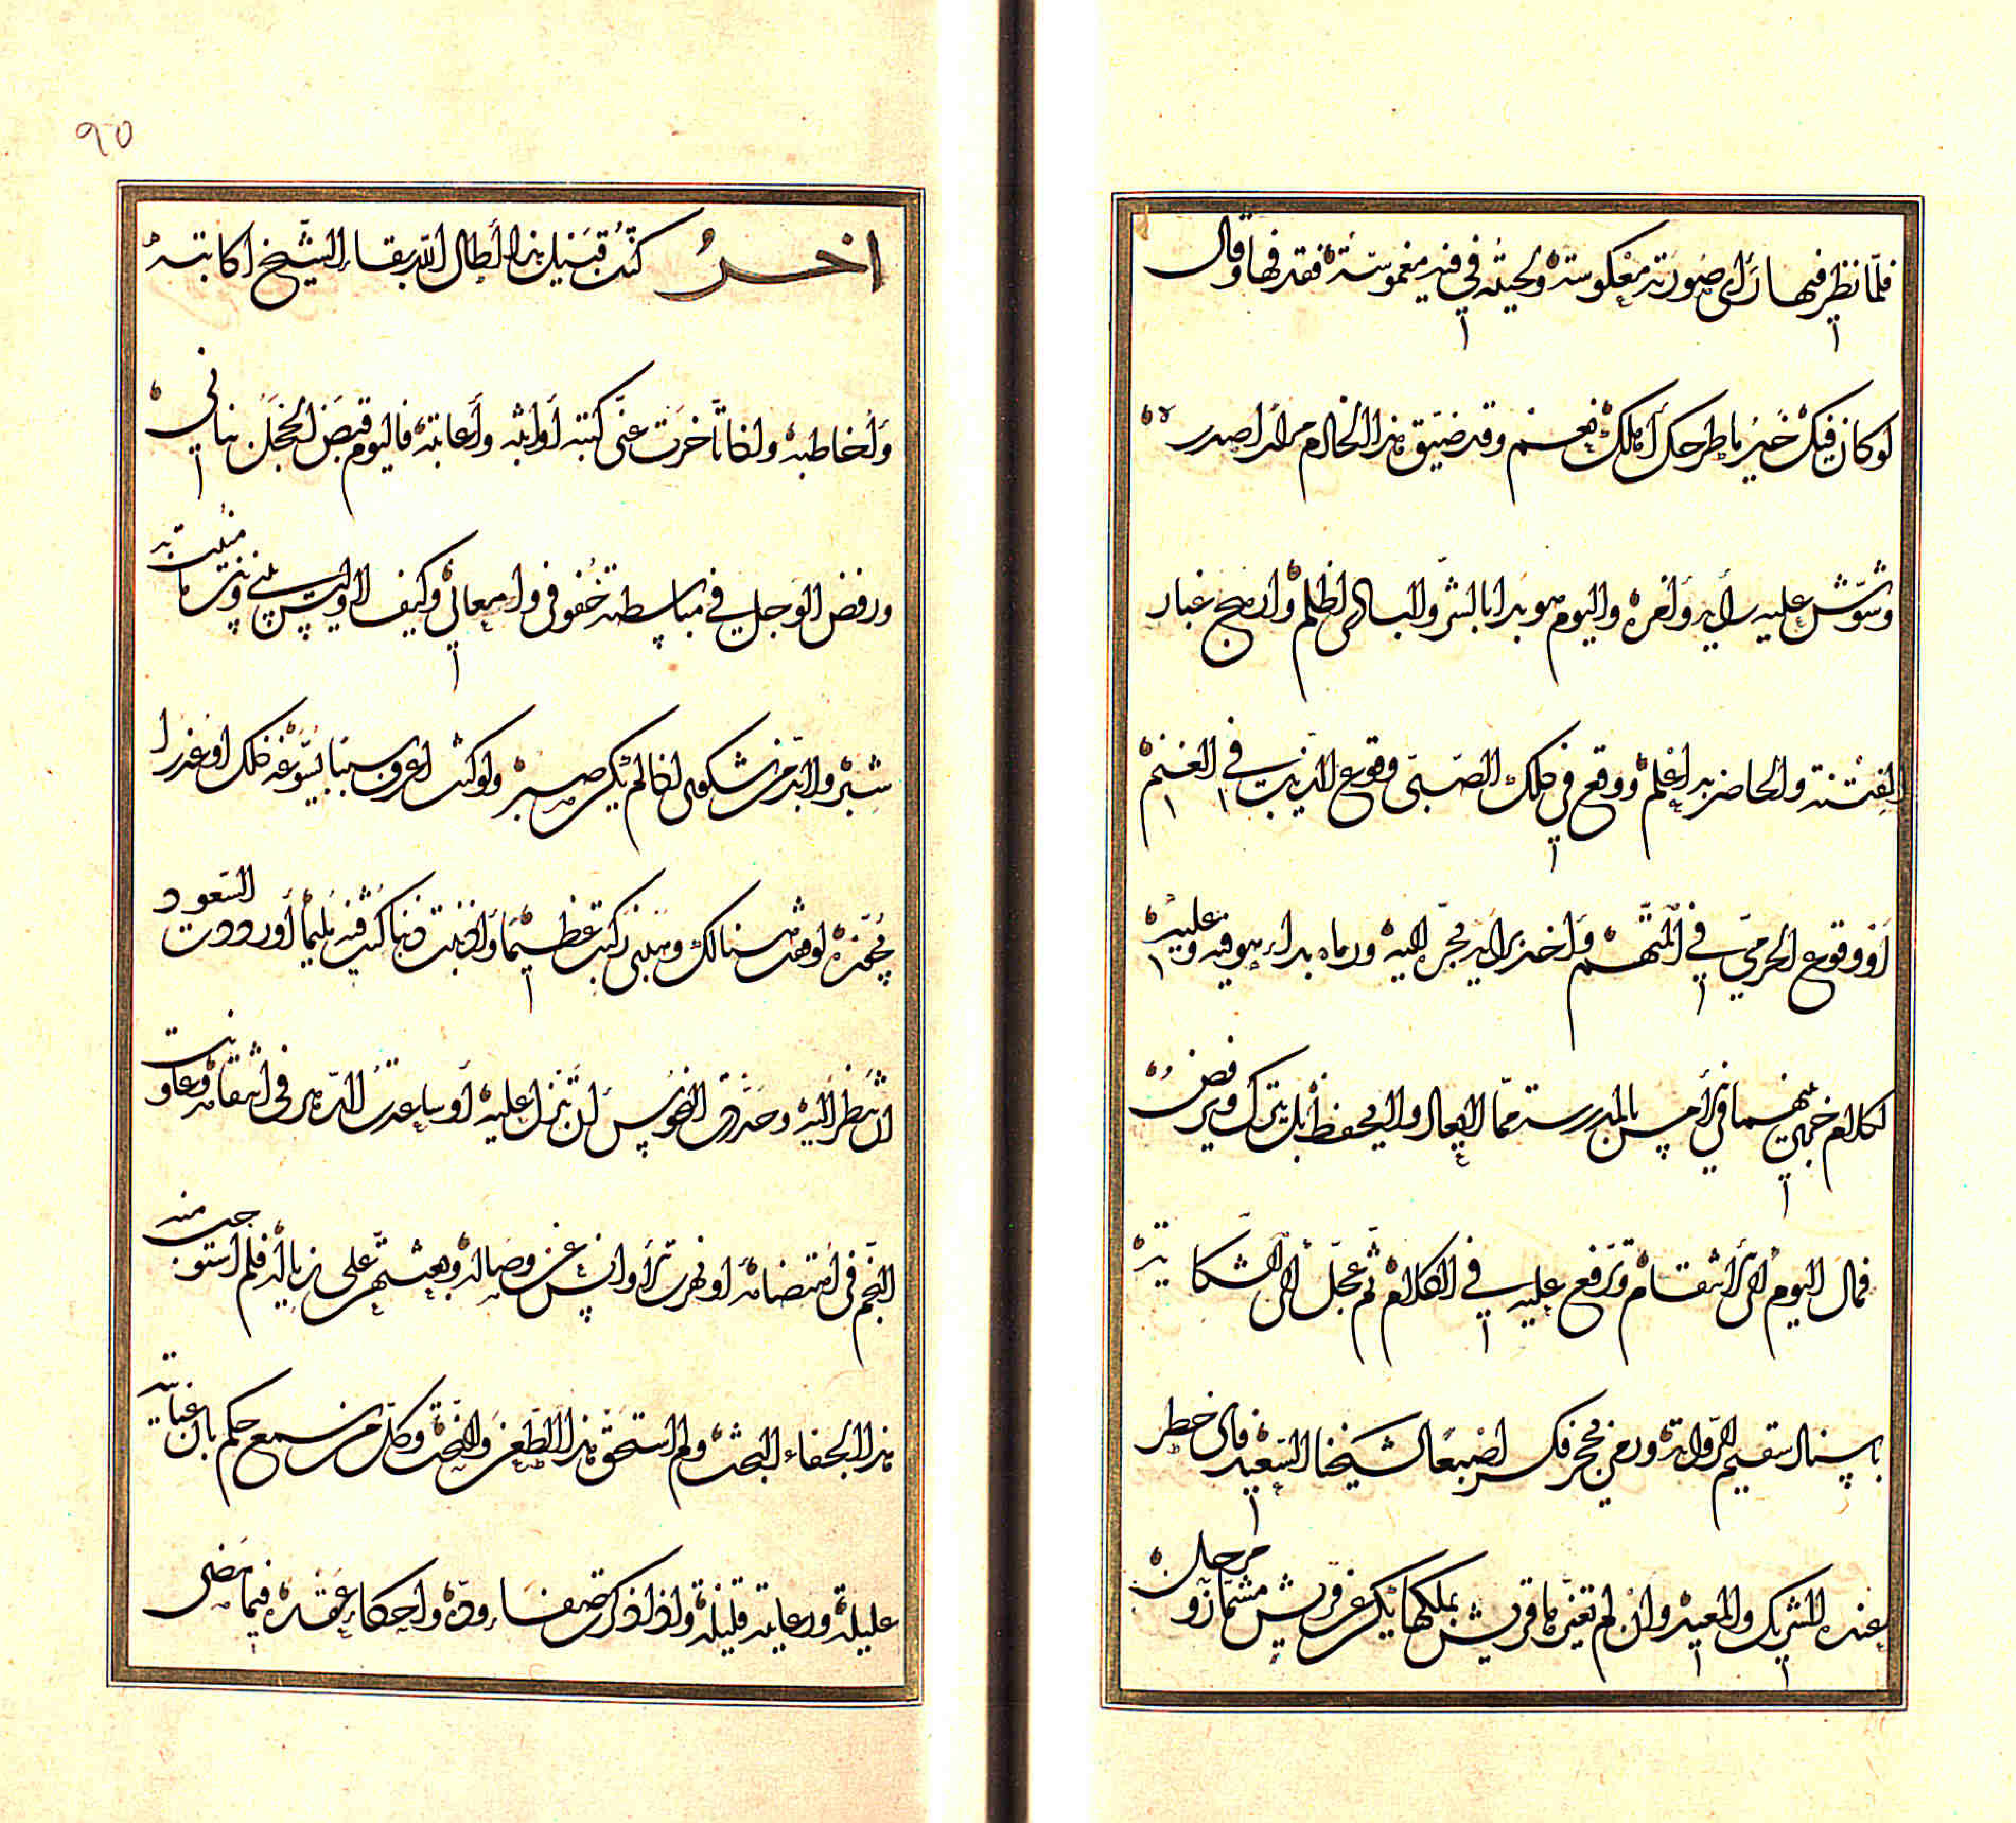 فلمّا نظر فيها رأى صورته معكوسة ولحيته في فيه مغموسة فقذفها وقال
لو كان فيك خير ما طرحك أهلك نعم وقد ضيق هذا الخادم مرارا صدره
وشوّش عليه رأيه وأمره واليوم هو بدأ بالشرّ والبادي أظلم وأرهج غبار
الفتنة والحاضر بها أعلم ووقع في ذلك الصّبيّ وقوع الذيب في الغنم
أو وقوع الحرميّ في المتّهم وأخذ برأيه فجرّ إليه ورماه بداء هو فيه وعليه
لكلام خرج بينهما في أمس بالمدرسة ممّا لا يعاد ولا يحفظ بل يترك ويرفض
فمال اليوم إلى الانتقام وترفع عليه في الكلام ثم عجّل إلى الشكاية
باسناد سقيم الرواية ورمى بحجر فكسر اصبعا لشيخنا السعيد فأي خطر
عنده للشريك والمعيد وان لم تغيرها قريش بملكها يكن عن قريش مستماز ومزحل
٩٥
اخر كتبت قبيل هذا أطال الله بقاء الشيخ اكاتبه
وأخاطبه واذا تأخرت عنّي كتبه أواثبه وأعاتبه فاليوم قبض الخجل بناني
ورفض الوجل في مباسطته خفوفي وامعاني وكيف لا وليس بيني وبين ما منيت به
شبر ولا بدّ من شكوى اذا لم يكن صبر ولو كنت اعرف سببا يسوّغ ذلك او عذرا
يمهده لوهنت هنالك وهبني ركبت عظيما وأذنبت ذنبا كنت فيه مليما أو رددت السعود
ان ينظر إليه وحذّرت النحوس أن تنزل عليه أو ساعدت الدّهر في انتقامه وعاونت
النجم في اهتضامه او نهرت رأوانس عن وصاله وبعثتهم على زياله فلم استوجب منه
هذا الجفاء البحت ولم استحق هذا الطعن والنحت وكل من سمع حكم بأن عنايته
عليلة ورعايته قليلة واذا اذكرت صفاء ودّه واحكام عقده فيما مضى